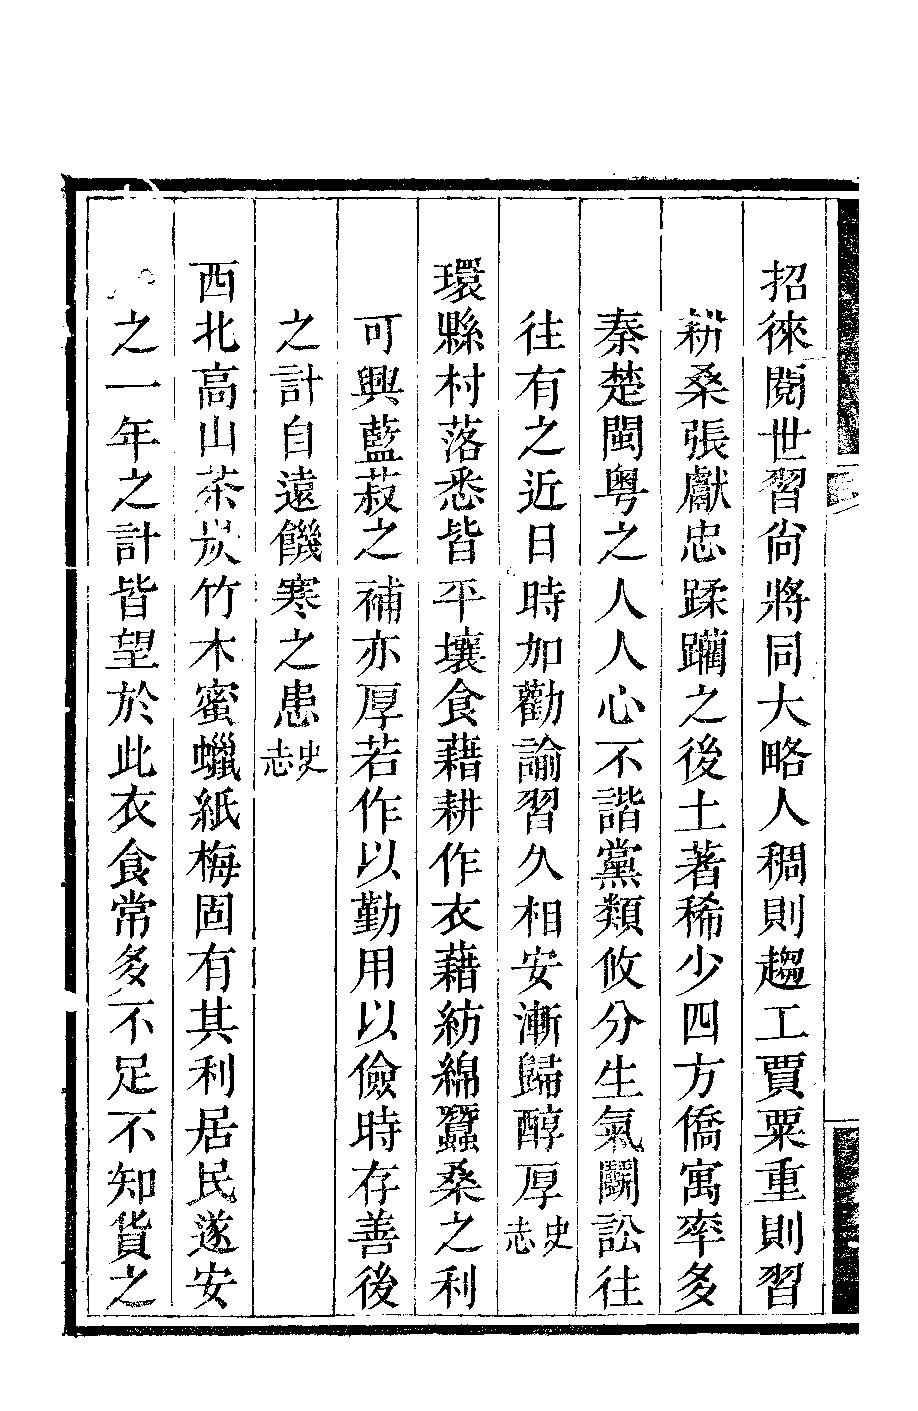 招徠閱世習尙將同大略人稠則趨工賈粟重則習
耕桑張獻忠蹂躪之後土著稀少四方僑寓率多
秦楚閩粤之人人心不諧黨類攸分生氣鬭訟往
往有之近日時加勸諭習久相安漸歸醇厚史志
環縣村落悉皆平壤食藉耕作衣藉紡綿蠶桑之利
可興藍菽之補亦厚若作以勤用以儉時存善後
之計自遠饑寒之患史志
西北高山茶炭竹木蜜蠟紙梅固有其利居民遂安
之一年之計皆望於此衣食常多不足不知貨之